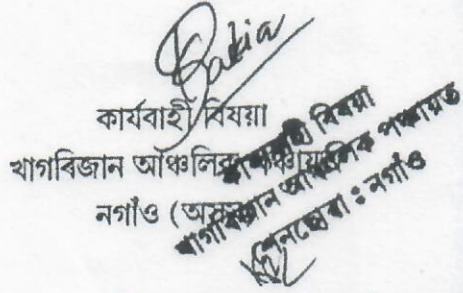 কাৰ্যবাহী বিষয়া
খাগৰিজান আঞ্চলিক পঞ্চায়ত
নগাঁও (অসম)
কাৰ্যবাহী বিষয়া
খাগৰিজান আঞ্চলিক পঞ্চায়ত
সেনচোৱা : নগাঁও